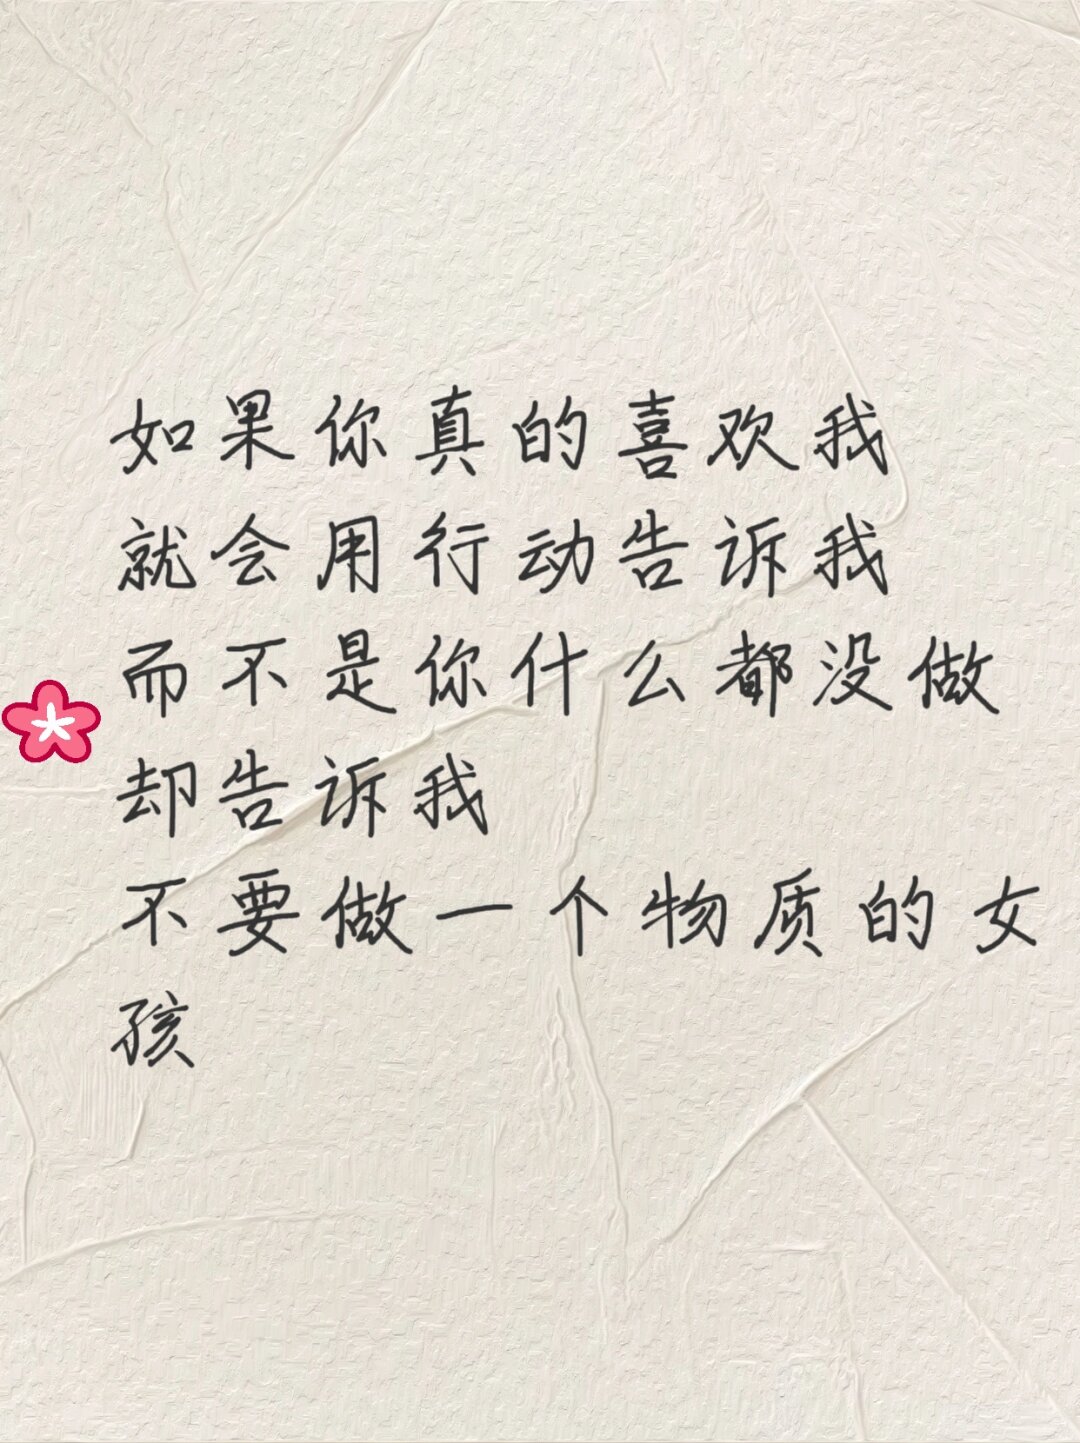 如果你真的喜欢我
就会用行动告诉我
而不是你什么都没做
却告诉我
不要做一个物质的女
孩